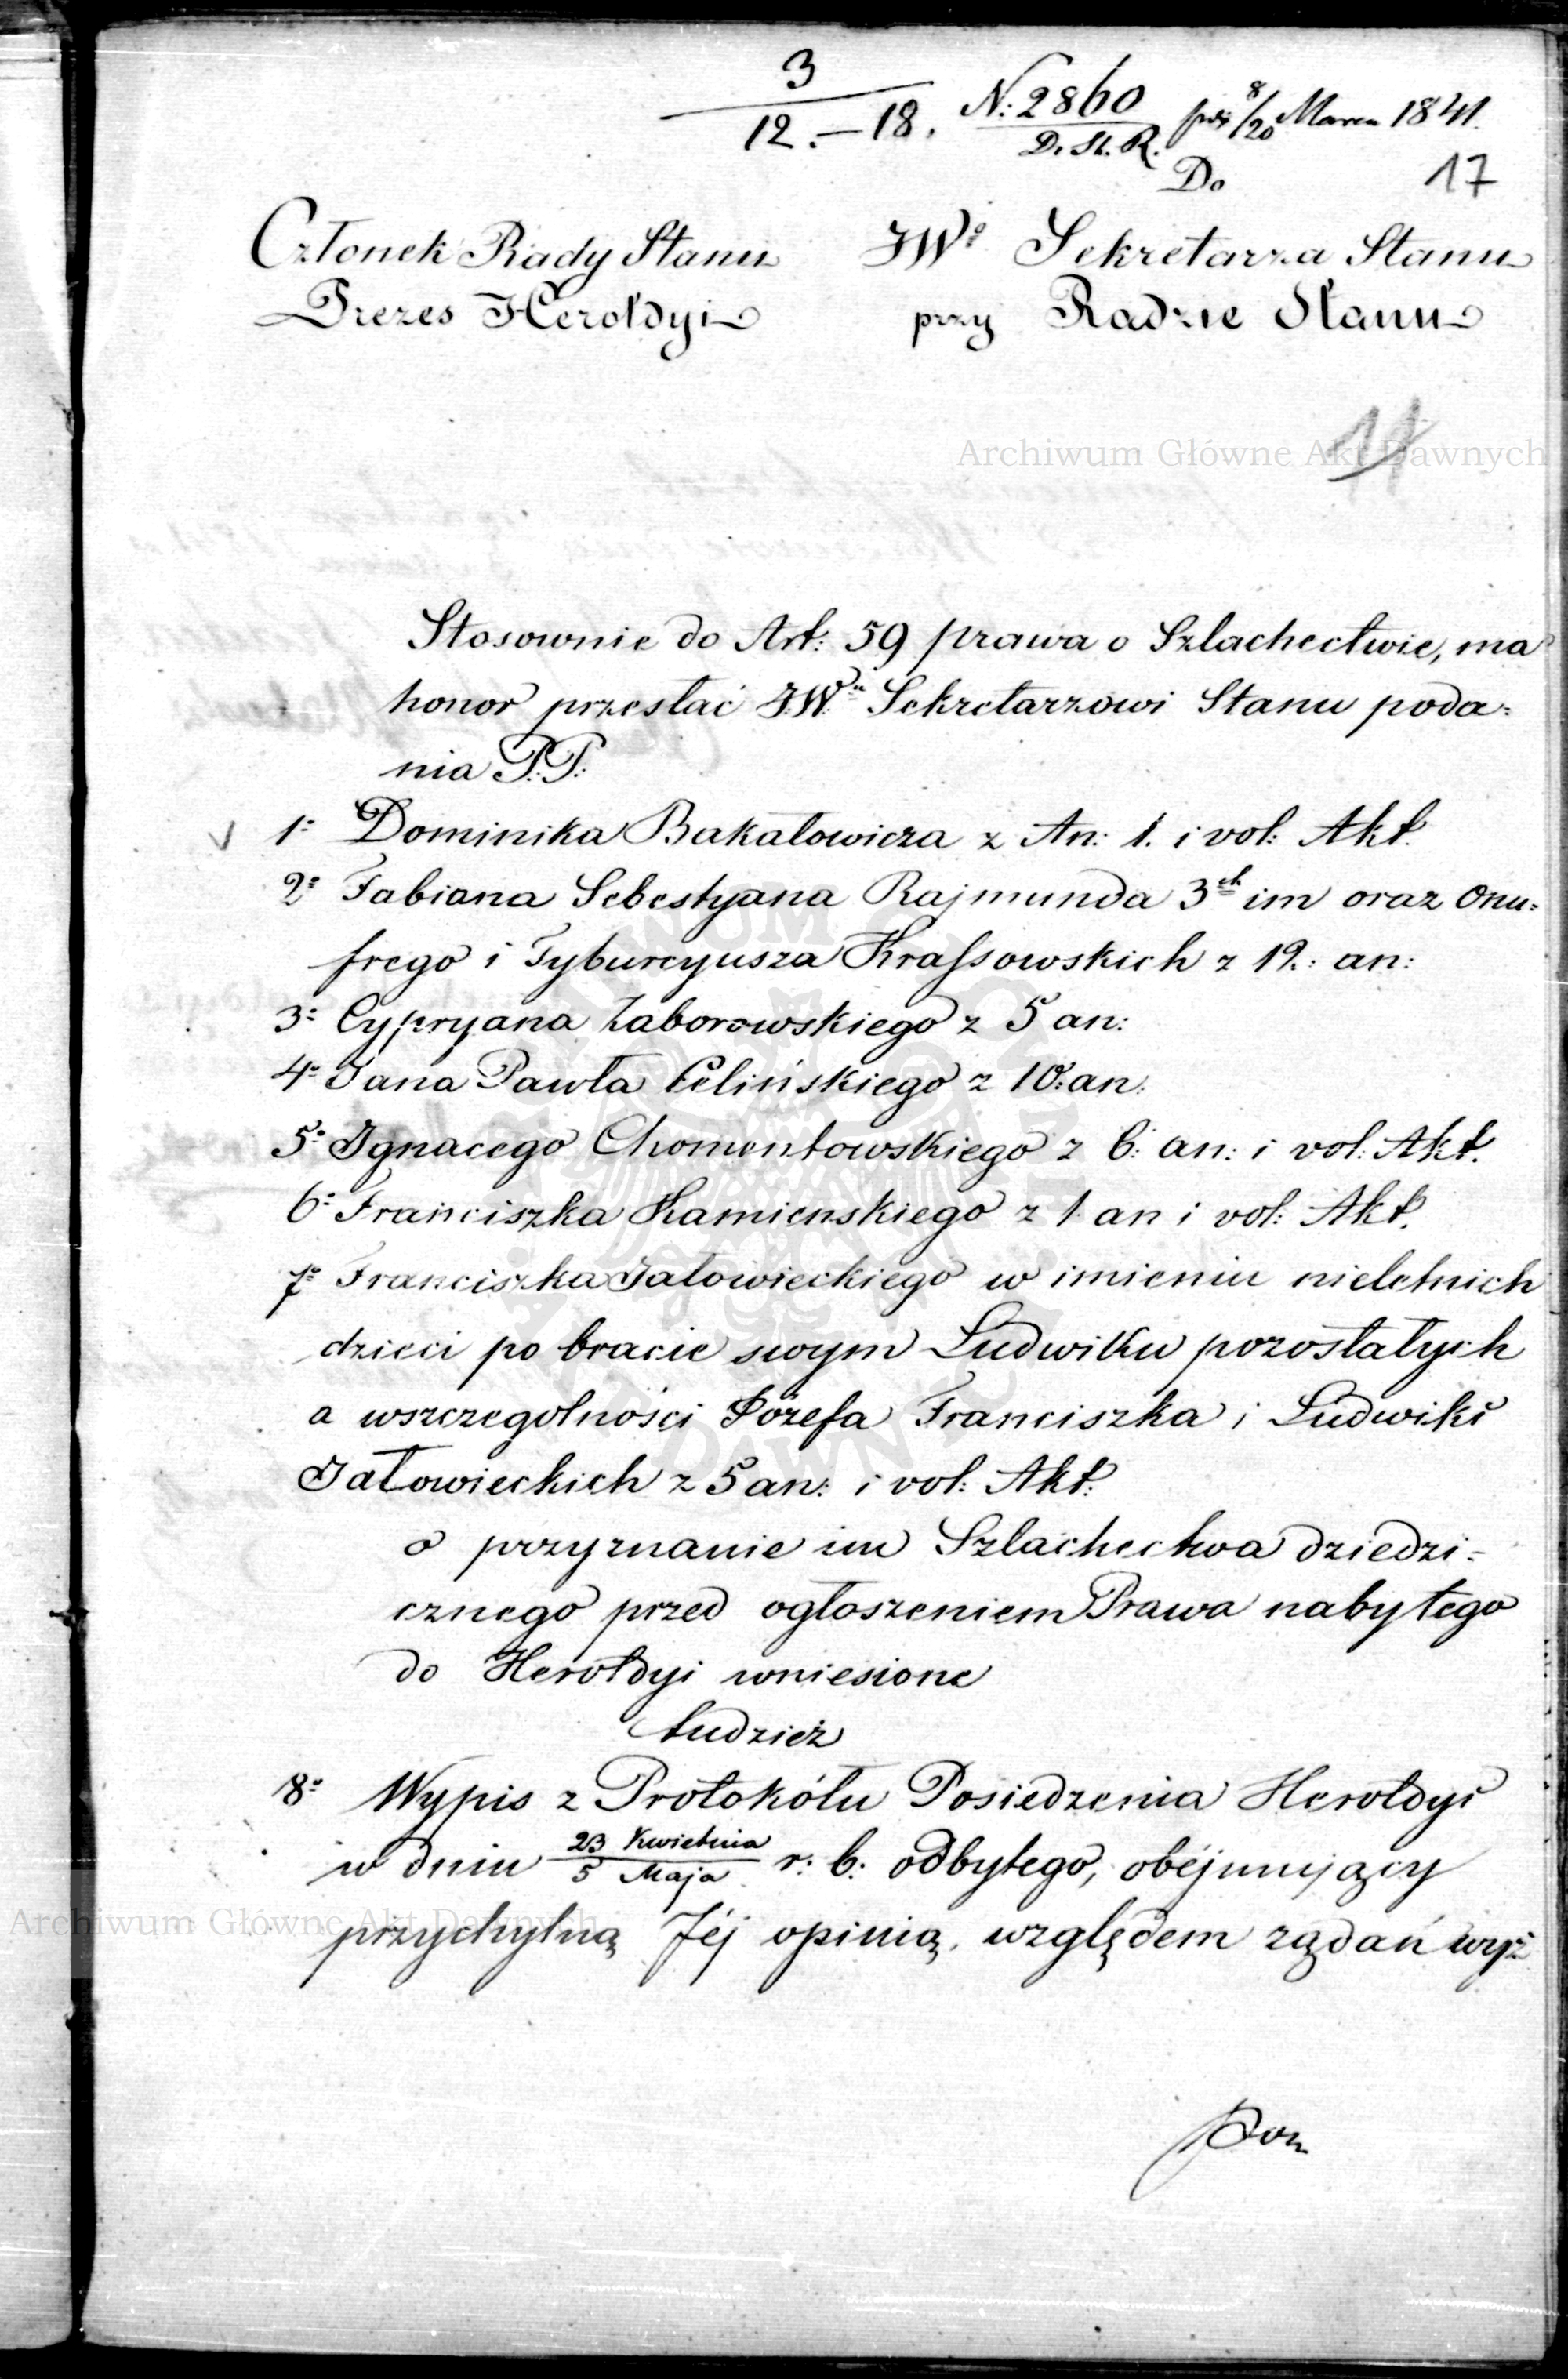 3
12.—18. N: 2860 D. St. R. 8/20 Marca 1841.
Do 17
Członek Rady Stanu JWº Sekretarza Stanu
Prezes Heroldyi przy Radzie Stanu
11
Archiwum Główne Akt Dawnych
Stosownie do Art: 59 prawa o Szlachectwie, ma
honor przesłać J.W.u Sekretarzowi Stanu poda=
nia P.P.
1º Dominika Bakałowicza z An: 1. i vol: Akt.
2º Fabiana Sebestyana Rajmunda 3ch im oraz Onu=
frego i Tyburcyusza Krassowskich z 12.: an:
3º Cypryana Zaborowskiego z 5 an:
4º Jana Pawła Celińskiego z 10: an:
5º Ignacego Chomentowskiego z 6: an: i vol: Akt.
6º Franciszka Kamienskiego z 1 an i vol: Akt.
7º Franciszka Jałowieckiego w imieniu nieletnich
dzieci po bracie swym Ludwiku pozostałych
a wszczegolności Józefa Franciszka i Ludwiki
Jałowieckich z 5 an: i vol: Akt:
o przyznanie im Szlachectwa dziedzi=
cznego przed ogłoszeniem Prawa nabytego
do Heroldyi wniesione
tudzież
8º Wypis z Protokółu Posiedzenia Heroldyi
w dniu 23 Kwietnia / 5 Maja r: b: odbytego, obejmujący
przychylną Jéj opinią, względem rządań wyż
Archiwum Główne Akt Dawnych